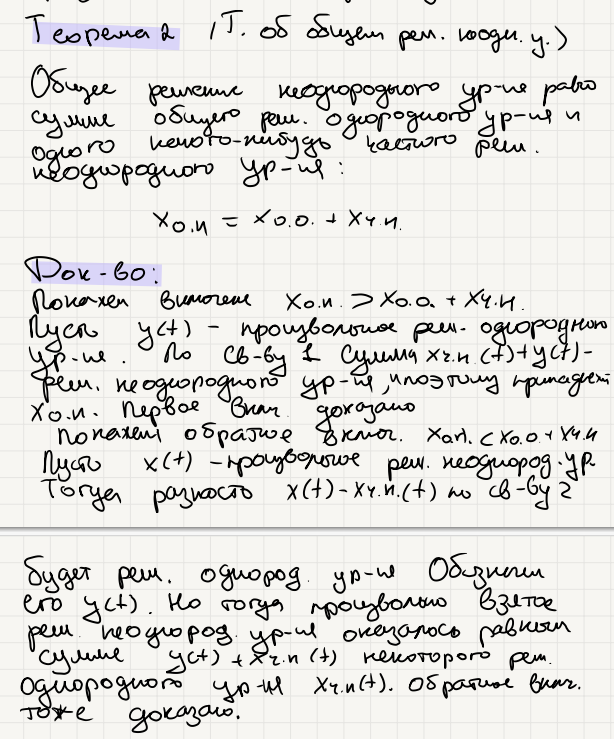 Теорема 2 (Т. об общем реш. неодн. у.)
Общее решение неоднородного ур-ия равно
сумме общего реш. однородного ур-ия и
одного какого-нибудь частного реш.
неоднородного ур-ия:
x о.н = x о.о. + x ч.н.
Док-во:
Покажем включение x о.н. ⊃ x о.о. + x ч.н.
Пусть y(t) - произвольное реш. однородного
ур-ие. По св-ву 1 сумма x ч.н.(t)+y(t)-
реш. неоднородного ур-ия, и поэтому принадлежит
x о.н. Первое вкл. доказано
Покажем обратное включ. x о.н. ⊂ x о.о. + x ч.н
Пусть x(t) - произвольное реш. неоднород. ур.
Тогда разность x(t) - x ч.н.(t) по св-ву 2
будет реш. однород. ур-ия Обозначим
его y(t). Но тогда произвольно взятое
реш. неоднород. ур-ия оказалось равным
сумме y(t) + x ч.н (t) некоторого реш.
однородного ур-ия x ч.н(t). Обратное вкл.
тоже доказано.